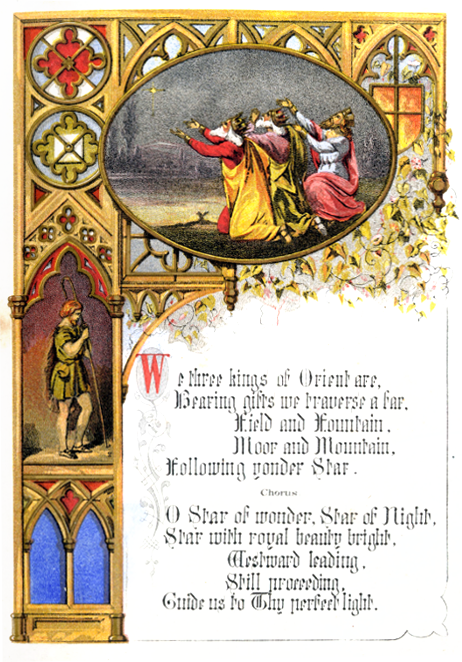 We three kings of Orient are,
Bearing gifts we traverse a far,
Field and Fountain,
Moor and Mountain,
Following yonder Star.
Chorus
O Star of wonder, Star of Night,
Star with royal beauty bright,
Westward leading,
Still proceeding,
Guide us to Thy perfect light.